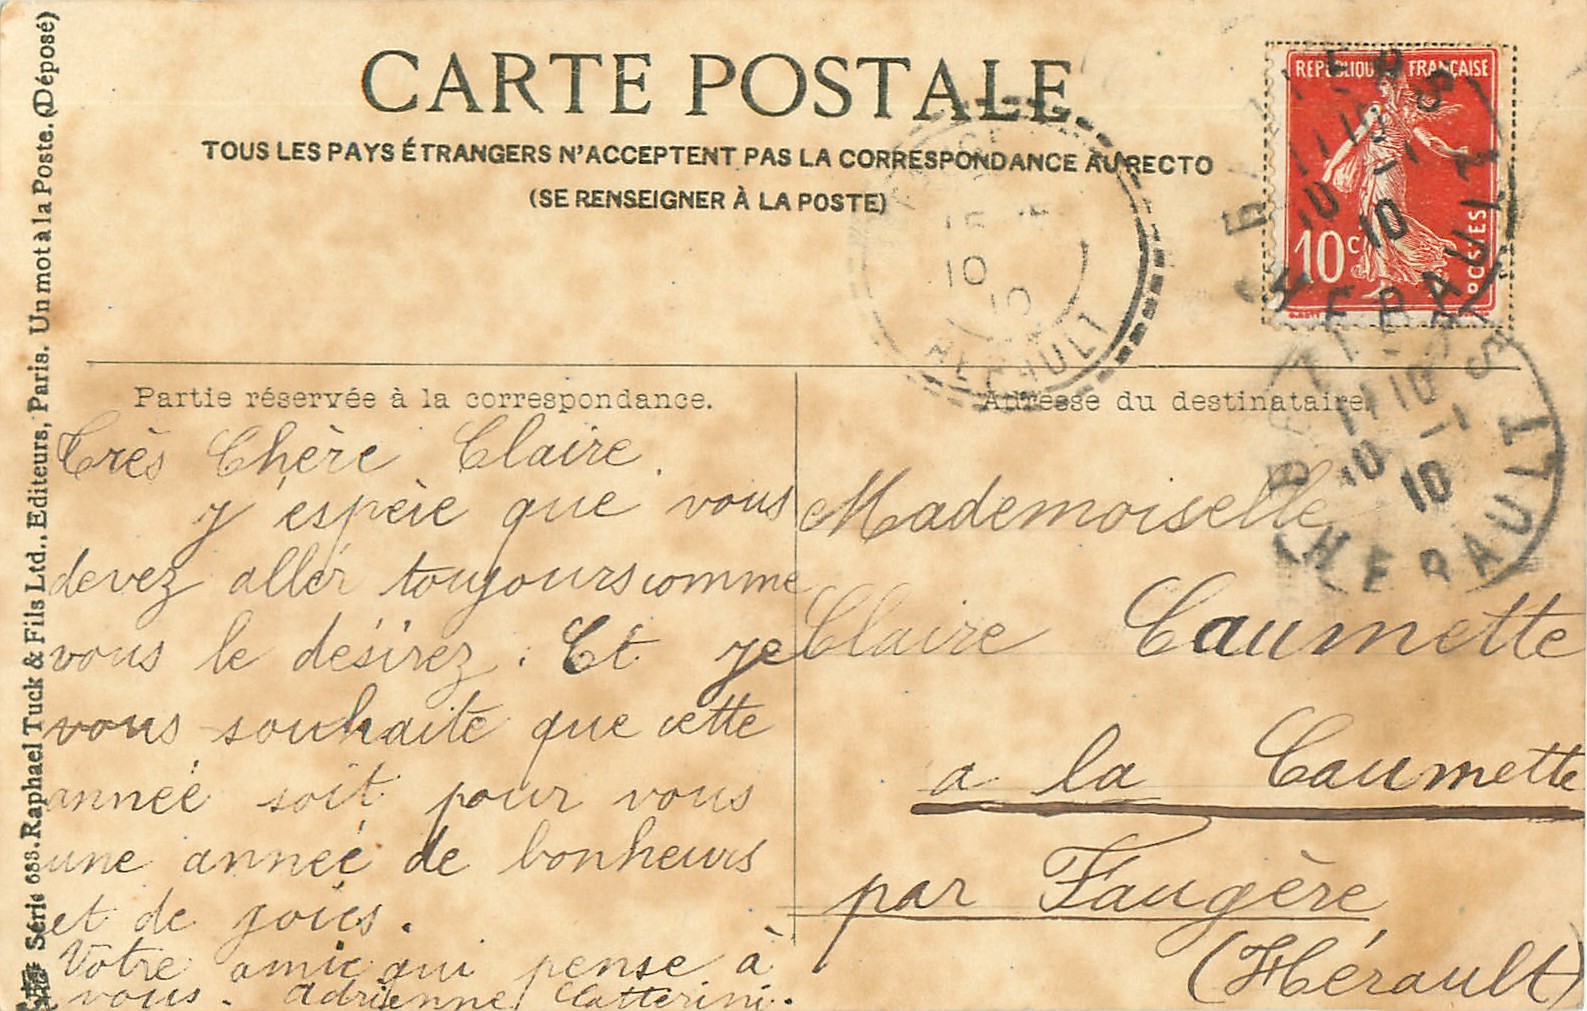 CARTE POSTALE
TOUS LES PAYS ÉTRANGERS N'ACCEPTENT PAS LA CORRESPONDANCE AU RECTO
(SE RENSEIGNER À LA POSTE)
REPUBLIQUE FRANÇAISE
10c
POSTES
10
10
HERAULT
HERAULT
10
10
HERAULT
Partie réservée à la correspondance.
Très Chère Claire.
J'éspère que vous
devez aller toujours comme
vous le désirez. Et je
vous souhaite que cette
année soit pour vous
une année de bonheurs
et de joies.
Votre amie qui pense à
vous. Adrienne Catterini.
Adresse du destinataire.
Mademoiselle
Claire Caumette
a la Caumette
par Faugère
(Hérault)
Série 688. Raphael Tuck & Fils Ltd., Editeurs, Paris. Un mot à la Poste. (Déposé)